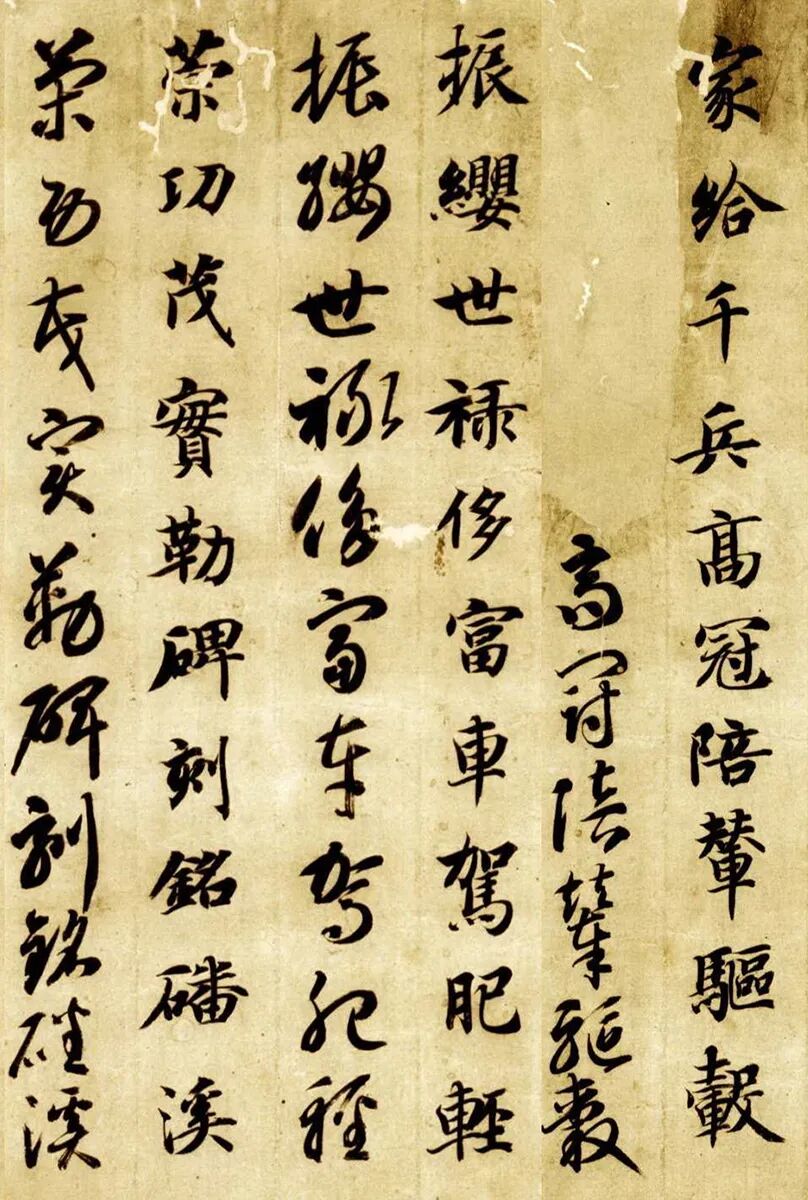 家給千兵高冠陪輦驅轂
高冠陪輦驅轂
振纓世禄侈富車駕肥輕
振纓世禄侈富車駕肥輕
策功茂實勒碑刻銘磻溪
策功茂實勒碑刻銘磻溪